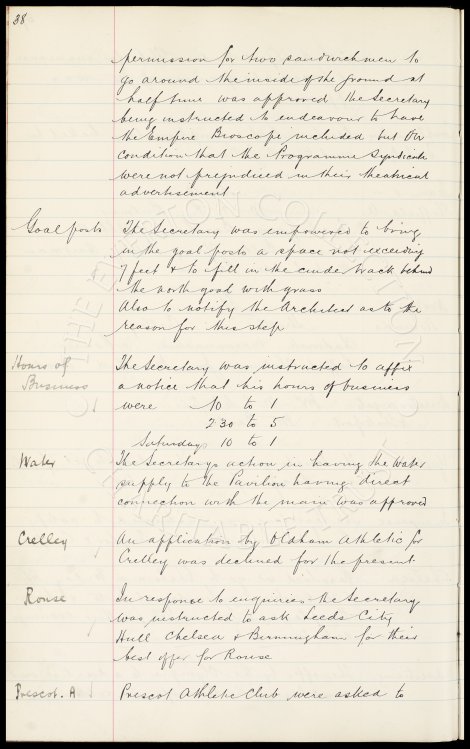 38
permission for two sandwichmen to
go around the inside of the ground at
half time was approved the Secretary
being instructed to endeavour to have
the Empire Bioscope included but on
condition that the Programme Syndicate
were not prejudiced in their theatrical
advertisement
Goal posts The Secretary was empowered to bring
in the goal posts a space not exceeding
7 feet & to fill in the cinder track behind
the north goal with grass
Also to notify the Architect as to the
reason for this step
Hours of The Secretary was instructed to affix
Business a notice that his hours of business
were 10 to 1
2 30 to 5
Saturdays 10 to 1
Water The Secretarys action in having the water
supply to the Pavilion having direct
connection with the main was approved
Crelley An application by Oldham Athletic for
Crelley was declined for the present
Rouse In response to enquiries the Secretary
was instructed to ask Leeds City
Hull Chelsea & Birmingham for their
best offer for Rouse
Prescot. A Prescot Athletic Club were asked to
THE EVERTON COLLECTION
CHARITABLE TRUST